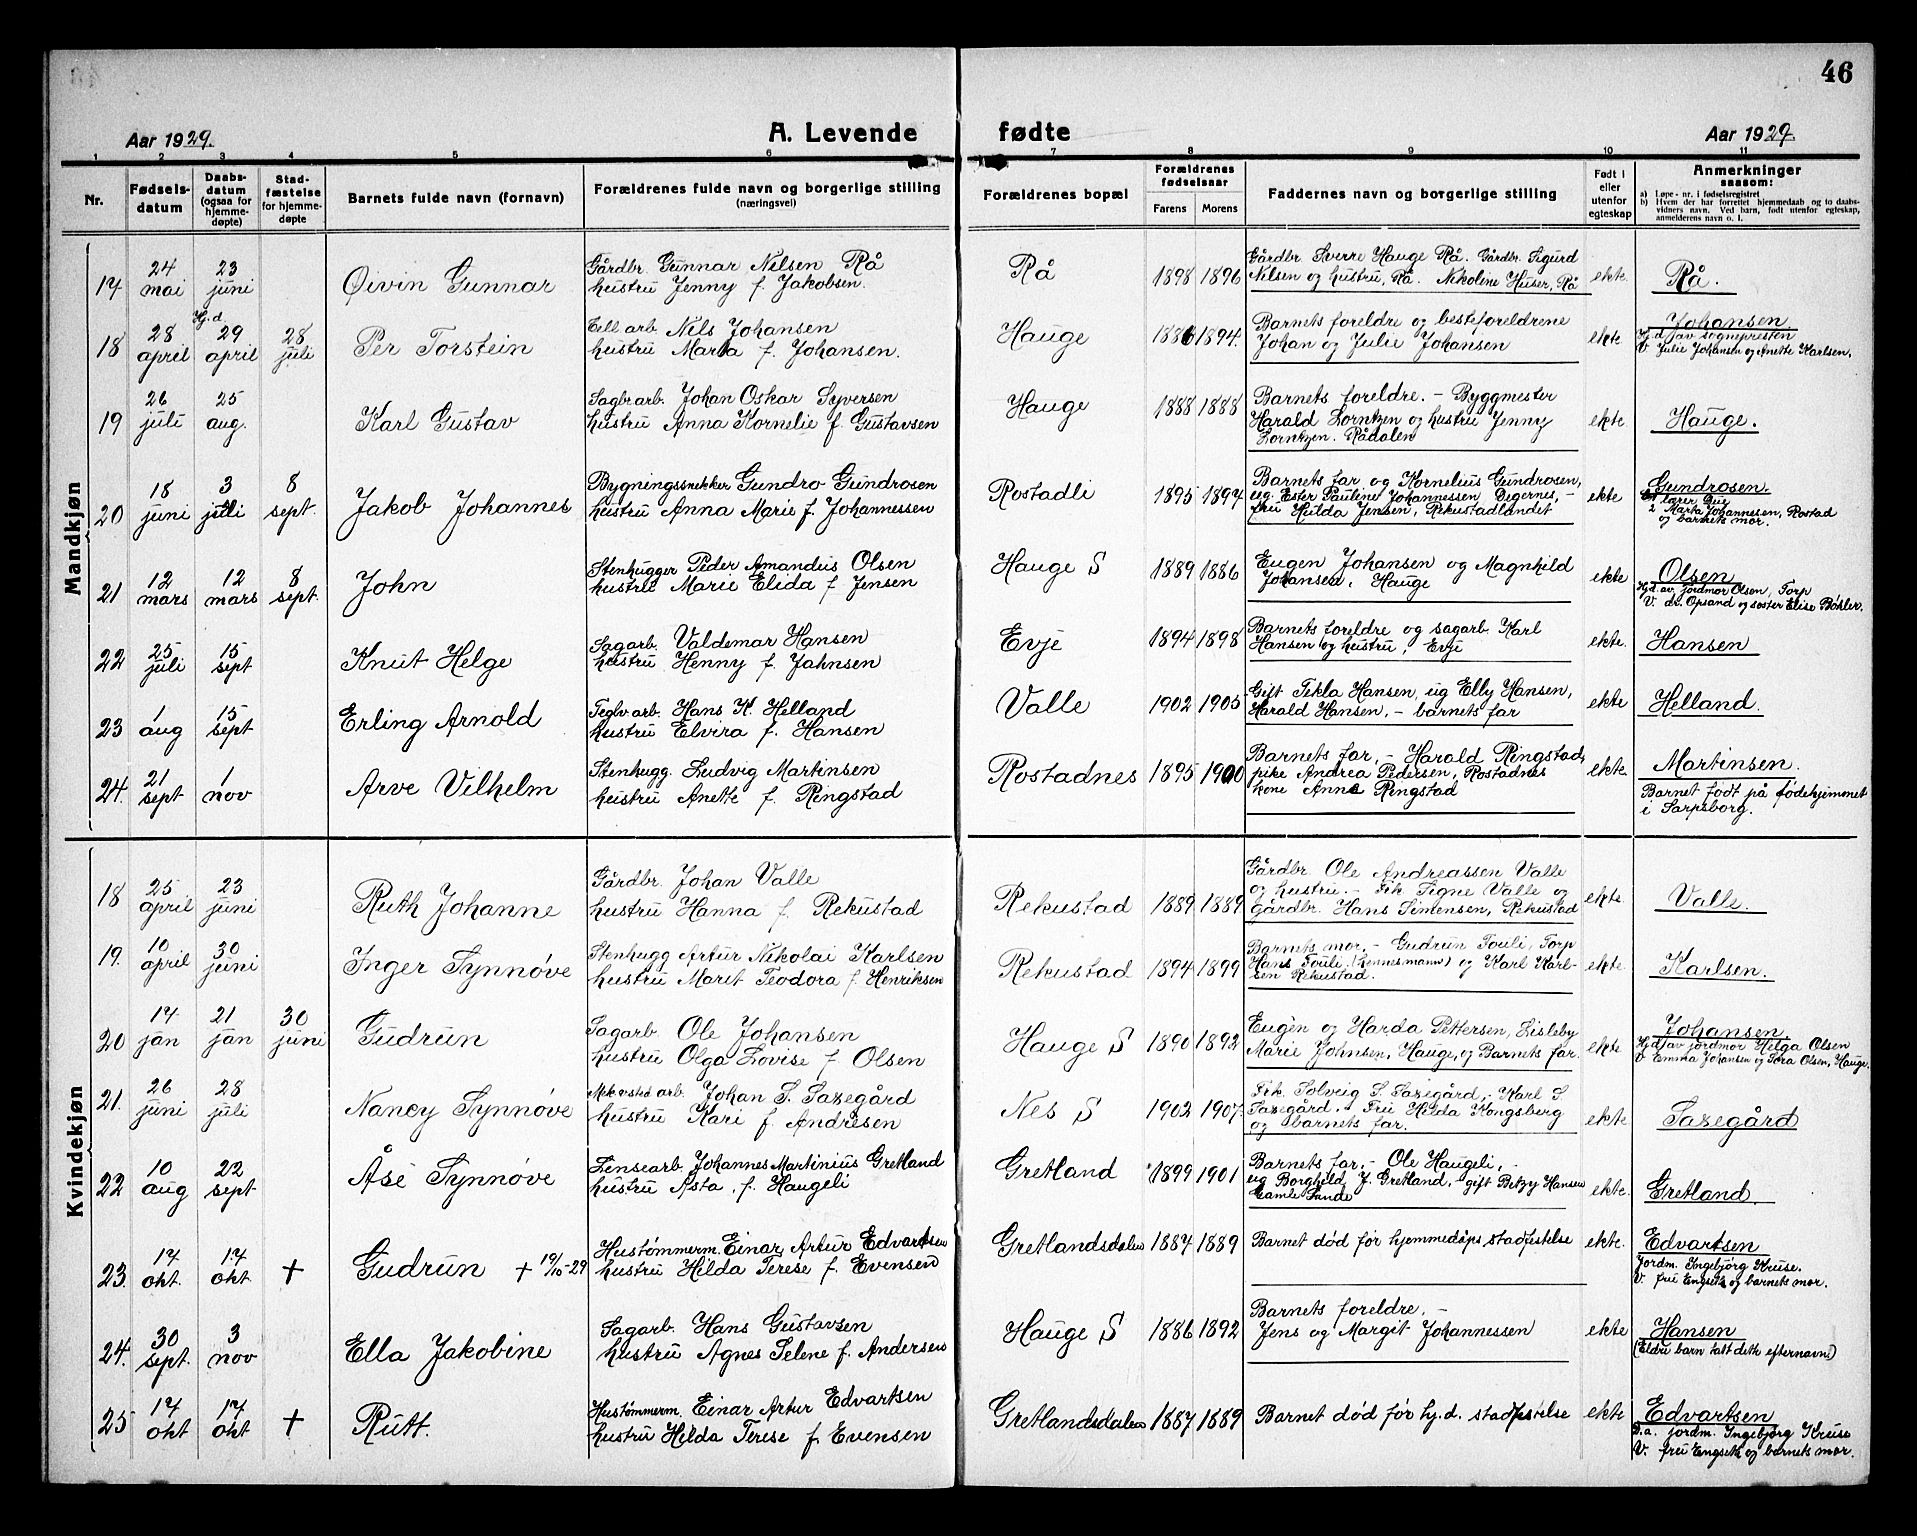 46
Aar 1929.
A. Levende fødte
Aar 1929.
1 2 3 4 5 6 7 8 9 10 11
Nr.
Fødselsdatum
Daabsdatum (ogsaa for hjemmedøpte)
Stadfæstelse for hjemmedøpte
Barnets fulde navn (fornavn)
Forældrenes fulde navn og borgerlige stilling
(næringsvei)
Forældrenes bopæl
Forældrenes fødselsaar
Farens Morens
Faddernes navn og borgerlige stilling
Født i eller utenfor egteskap
Anmerkninger
saasom:
a) Løpe-nr. i fødselsregistret
b) Hvem der har forrettet hjemmedaab og to daabsvidners navn. Ved barn, født utenfor egteskap, anmelderens navn o. l.
Mandkjøn
17 24 mai 23 juni Øivin Gunnar
Gårdbr. Gunnar Nilsen Rå
hustru Jenny f. Jakobsen.
Rå 1898 1896
Gårdbr. Sverre Hauge Rå. Gårdbr. Sigurd
Nilsen og hustru, Rå. Nikoline Huser, Rå
ekte Rå.
18 28 april Hj.d. 29 april 28 juli Per Torstein
Cell. arb. Nils Johansen
hustru Marta f. Johansen.
Hauge 1886 1894.
Barnets foreldre og besteforeldrene
Johan og Julie Johansen
ekte Johansen
Hj.d. av sognepresten
V. Julie Johansen og Anette Karlsen.
19 26 juli 25 aug. Karl Gustav
Sagbr. arb. Johan Oskar Syversen
hustru Anna Kornelie f. Gustavsen
Hauge 1888 1888
Barnets foreldre. - Byggmester
Harald Lorntzen og hustru Jenny
Lorntzen. Rådalen
ekte Hauge.
20 18 juni 3 juli 8 sept. Jakob Johannes
Bygningssnekker Gundro Gundrosen
hustru Anna Marie f. Johannessen
Rostadli 1895 1897
Barnets far og Kornelius Gundrosen,
ug. Ester Pauline Johannessen Degernes, -
fru Hilda Jensen, Rekustadlandet
ekte Gundrosen.
lærer Bue
2 Marta Johannesen, Rostad
og barnets mor.
21 12 mars 12 mars 8 sept. John
Stenhugger Peder Amandus Olsen
hustru Marie Elida f Jensen
Hauge S 1889 1886
Eugen Johansen og Magnhild
Johansen, Hauge
ekte Olsen
Hj.d. av jordmor Olsen, Torp
V. dr. Opsand og søster Elise Bøhler.
22 25 juli 15 sept Knut Helge
Sagarb. Valdemar Hansen
hustru Henny f. Jahnsen
Evje 1894 1898
Barnets foreldre og sagarb. Karl
Hansen og hustru, Evje
ekte. Hansen
23 1 aug 15 sept Erling Arnold
Teglv. arb. Hans K. Helland
hustru Elvira f. Hansen
Valle 1902 1905
Gift Tekla Hansen, ug Elly Hansen,
Harald Hansen, - barnets far
ekte Helland.
24. 21 sept 1 nov Arve Vilhelm
Stenhugg. Ludvig Martinsen
hustru Anette f. Ringstad
Rostadnes 1895 1900
Barnets far, - Harald Ringstad,
pike Andrea Pedersen, Rostadnes
kone Anna Ringstad
ekte. Martinsen.
Barnet født på fødehjemmet
i Sarpsborg.
Kvindekjøn
18 25 april 23 juni Ruth Johanne
Gårdbr. Johan Valle
hustru Hanna f. Rekustad
Rekustad 1889 1889
Gårdbr Ole Andreassen Valle
og hustru. - Frk Signe Valle og
gårdbr. Hans Simensen, Rekustad
ekte. Valle.
19. 10 april 30 juni Inger Synnøve
Stenhugg Artur Nikolai Karlsen
hustru Marit Teodora f Henriksen
Rekustad 1894 1899
Barnets mor. - Gudrun Fouli, Torp
Hans Fouli. (hennes mann) og Karl Karlsen
Rekustad.
ekte Karlsen.
20 17 jan 21 jan 30 juni Gudrun
Sagarb. Ole Johansen
hustru Olga Lovise f Olsen
Hauge S 1890 1892
Eugèn og Harda Pettersen, Lisleby
Marie Johnsen, Hauge, og Barnets far.
ekte Johansen
Hj.d. av jordmor Helga Olsen
V. Emma Johansen og Tora Olsen, Hauge.
21. 26 juni 28 juli Nancy Synnøve
Mek. verksted arb. Johan S. Saxegård
hustru Kari f. Andresen
Nes S 1902 1907.
Frk. Solveig S. Saxegård, - Karl S.
Saxegård. - Fru Hilda Kongsberg
og barnets far.
ekte Saxegård
22 10 aug 22 sept Åse Synnøve
Lensearb. Johannes Martinius Gretland
hustru Asta f. Haugeli
Gretland 1899 1901
Barnets far, - Ole Haugeli, -
ug Borghild J. Gretland, - gift Betzy Hansen
Gamle Sande
ekte. Gretland.
23 17 okt. 17 okt. + Gudrun + 19/10-29
Hustømmerm. Einar Artur Edvartsen
hustru Hilda Terese f. Evensen
Gretlandsdalen 1887 1889
Barnet død før hjemmedåps stadfestelse
ekte. Edvartsen
Jordm. Ingebjørg Kruse.
V. fru Engseth og barnets mor.
24. 30 sept. 3 nov Ella Jakobine
Sagarb. Hans Gustavsen
hustru Agnes Selene f. Andersen
Hauge S 1886 1892
Barnets foreldre, -
Jens og Margit Johannessen
ekte Hansen
(Eldre barn tatt dette efternavn)
25 17 okt 17 okt + Rutt.
Hustømmerm. Einar Artur Edvartsen
hustru Hilda Terese f. Evensen
Gretlandsdalen 1887 1889
Barnet død før hj.d. stadfestelse
ekte Edvartsen
D.a. jordm. Ingebjørg Kruse
V. fru Engseth og barnets mor.